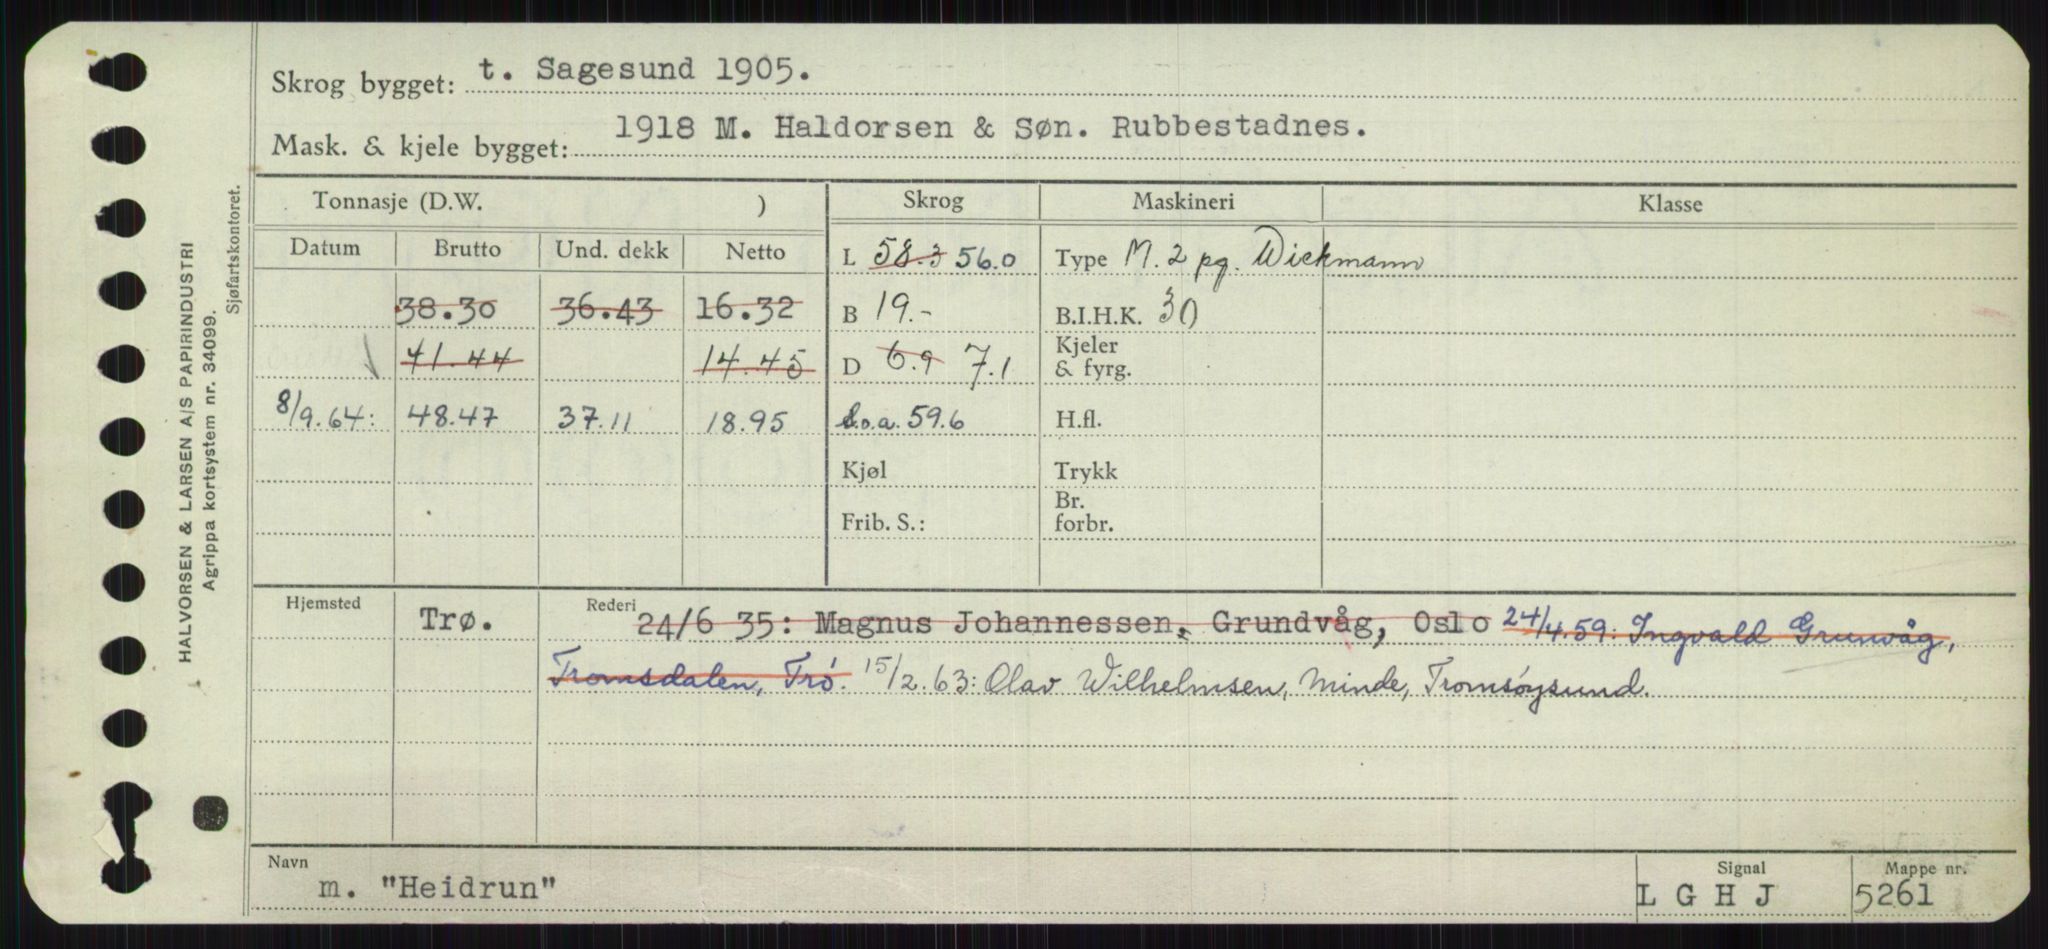 Skrog bygget: t. Sagesund 1905.
Mask. & kjele bygget: 1918 M. Haldorsen & Søn. Rubbestadnes.
Tonnasje (D.W. ) Skrog Maskineri Klasse
Datum Brutto Und. dekk Netto L 58.3 56.0 Type M. 2 pg. Wickmann
38.30 36.43 16.32 B 19.- B.I.H.K. 30
41.44 14.45 D 6.9 7.1 Kjeler & fyrg.
8/9.64: 48.47 37.11 18.95 L.o.a. 59.6 H.fl.
Kjøl Trykk
Frib. S.: Br. forbr.
Hjemsted Trø. Rederi 24/6 35: Magnus Johannessen, Grundvåg, Oslo 24/4.59: Ingvald Grunvåg,
Tromsdalen, Trø. 15/2.63: Olav Wilhelmsen, Minde, Tromsøysund.
Navn Signal Mappe nr.
m. "Heidrun" L G H J 5261
HALVORSEN & LARSEN A/S PAPIRINDUSTRI
Agrippa kortsystem nr. 34099.
Sjøfartskontoret.